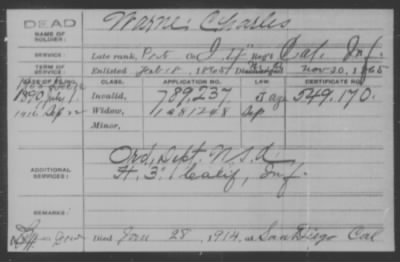 DEAD
NAME OF SOLDIER:
Warner Charles
SERVICE:
Late rank, Pvt Co. I, 4" Reg't Cal. Inf.
TERM OF SERVICE:
Enlisted Feb 18, 1865 Discharged Nov 30, 1865
DATE OF FILING. CLASS. APPLICATION NO. LAW. CERTIFICATE NO.
1890 July 1. Invalid, 789,237 J age 549,170.
1916 Widow, 1081248
Minor,
ADDITIONAL SERVICES:
Ord. Dept. U.S.A
H. 3" Calif. Inf.
REMARKS:
Died Jan 28, 1914, at San Diego Cal